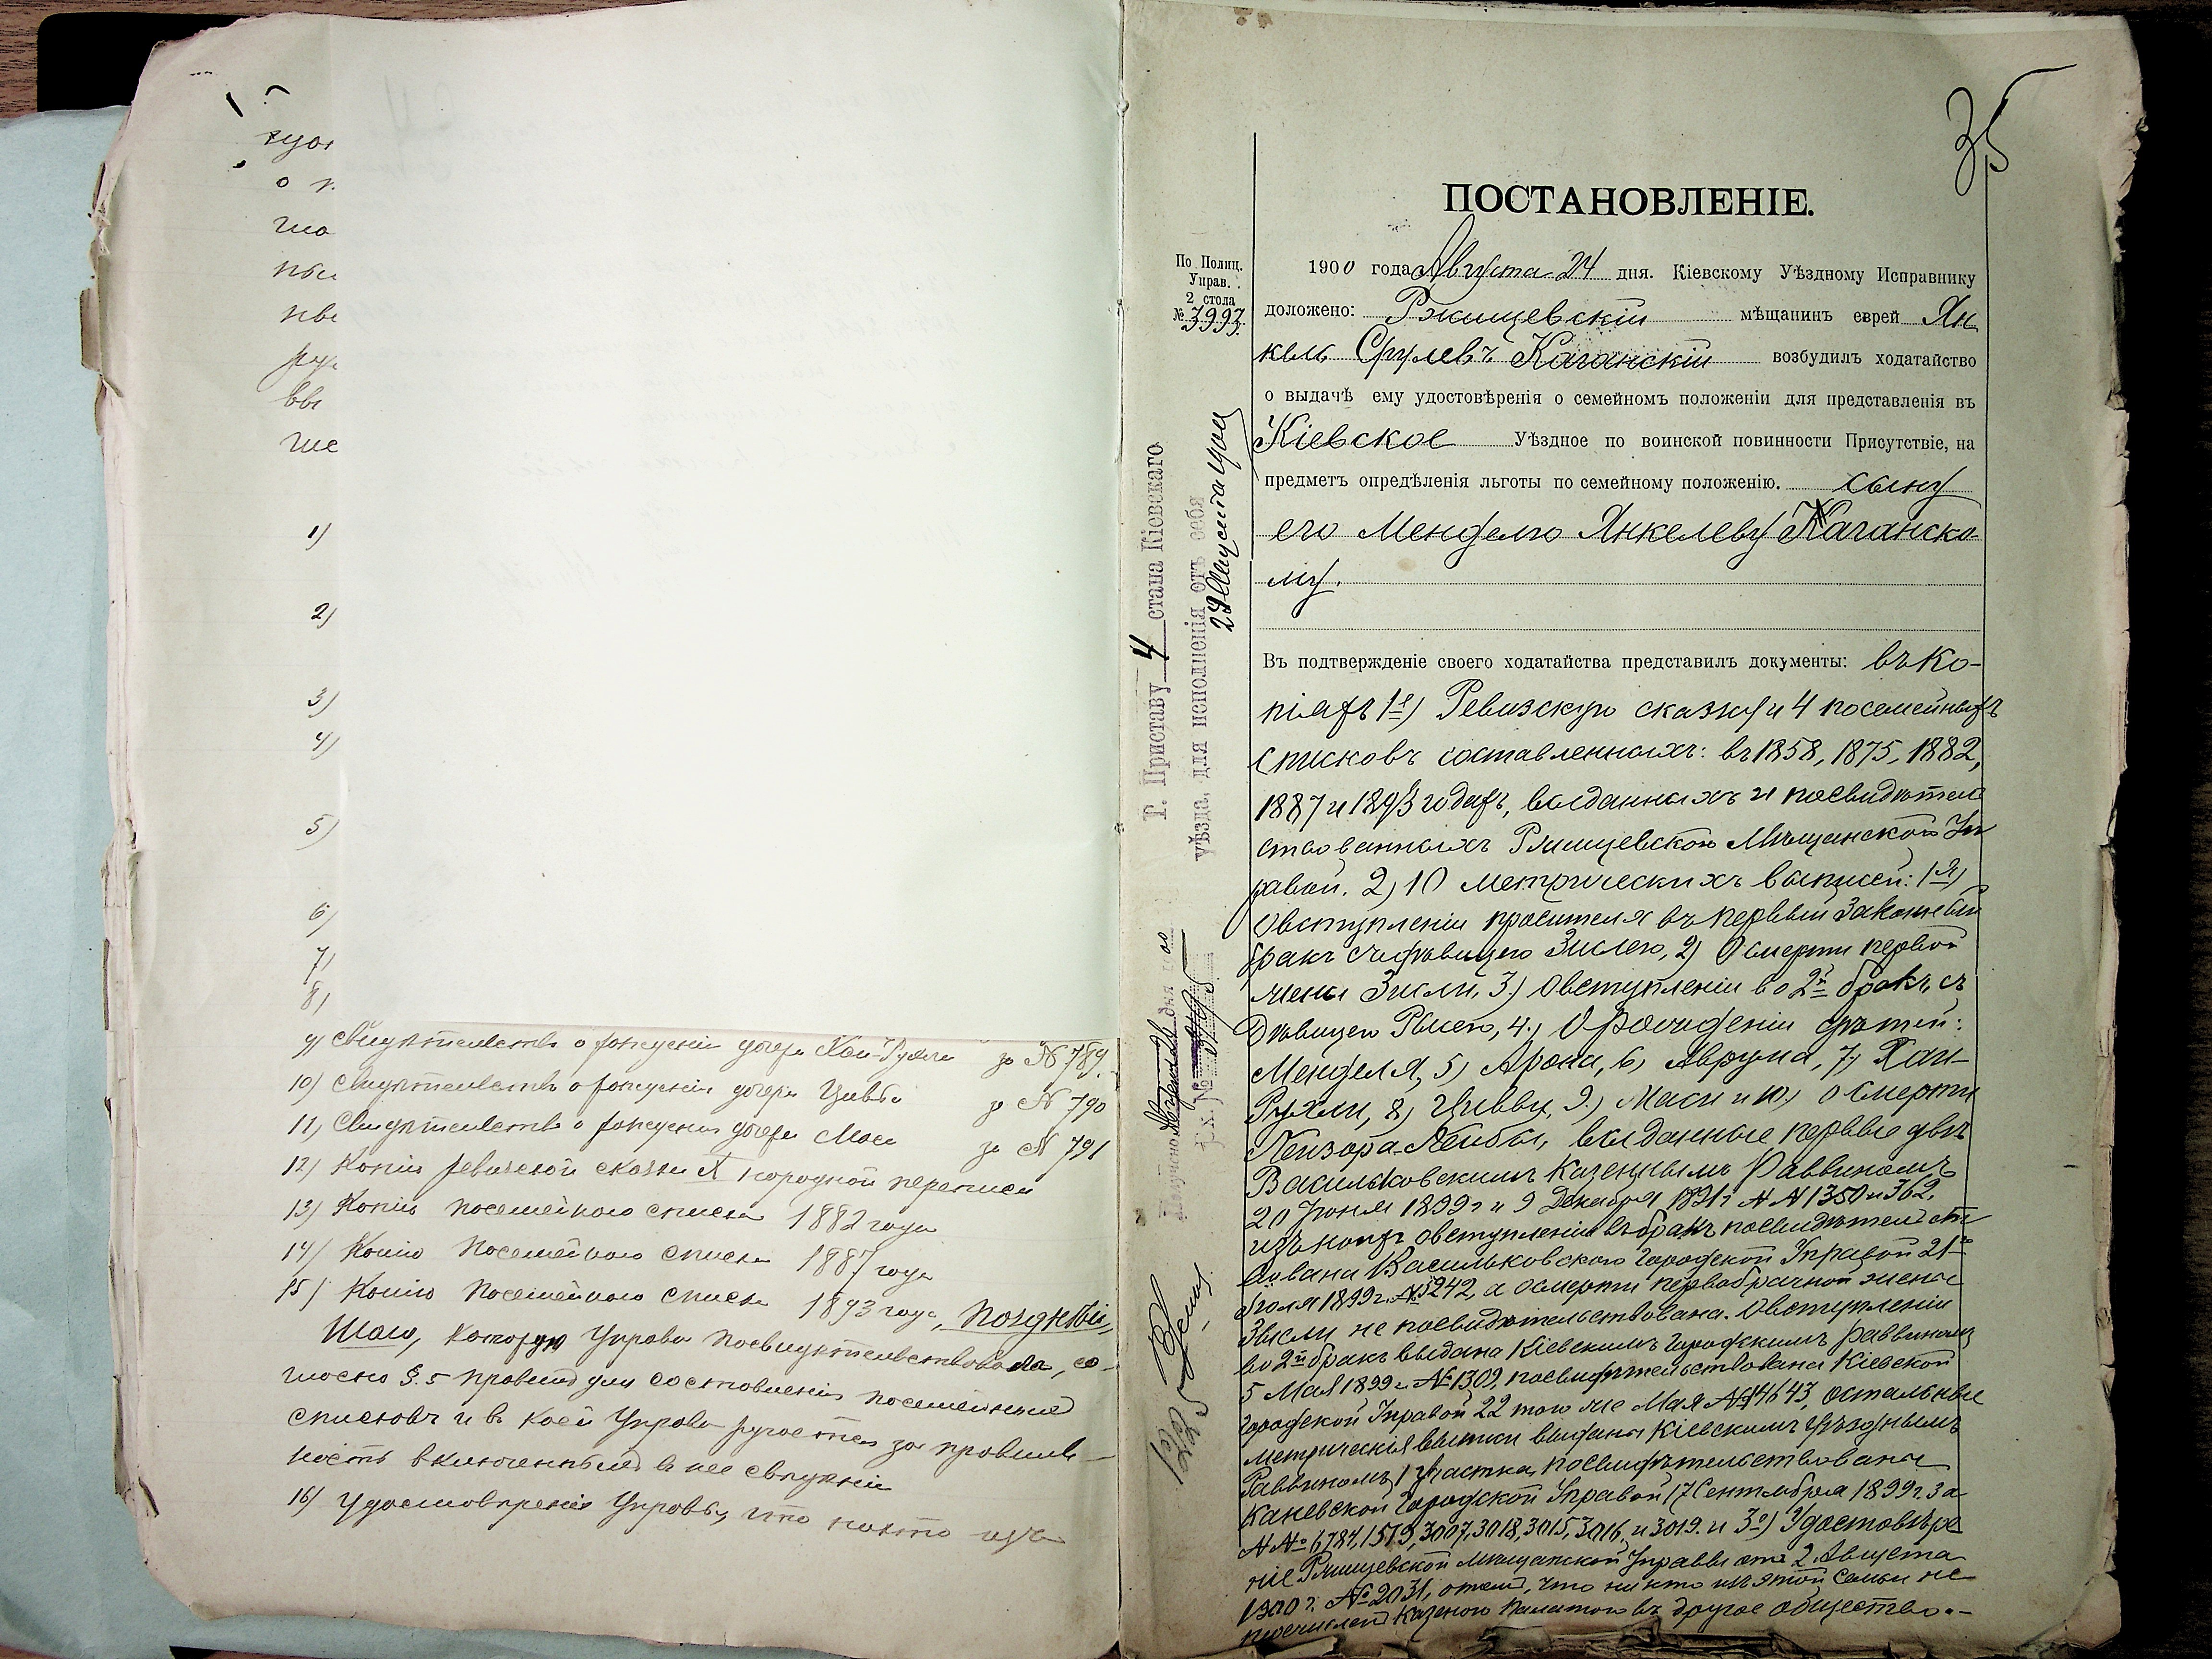 1)
2)
3)
4)
5)
6)
7)
8)
9) Свидѣтельство о рожденіи дочери Хаи-Рухли за № 789.
10) Свидѣтельство о рожденіи дочери Цивьи за № 790
11) Свидѣтельство о рожденіи дочери Маси за № 791
12) Копію ревизской сказки X народной переписи
13) Копію посемейнаго списка 1882 года
14) Копію посемейнаго списка 1887 года
15) Копію посемейнаго списка 1893 года, позднѣй-
шаго, которую Управа посвидѣтельствовала, со-
гласно §. 5 правилъ для составленія посемейныхъ
списковъ и въ коей Управа ручается за правиль-
ность включенныхъ въ нее свѣдѣній
16) Удостовѣреніе Управы, что никто изъ
35
ПОСТАНОВЛЕНІЕ.
По Полиц.
Управ.
2 стола
№ 3993.
1900 года Августа 24 дня. Кіевскому Уѣздному Исправнику
доложено: Ржищевскій мѣщанинъ еврей Ян
кель Срулевъ Каганскій возбудилъ ходатайство
о выдачѣ ему удостовѣренія о семейномъ положеніи для представленія въ
Кіевское Уѣздное по воинской повинности Присутствіе, на
предметъ опредѣленія льготы по семейному положенію. сыну
его Менделю Янкелеву Каганско-
му.
Г. Приставу 4 стана Кіевскаго
уѣзда, для исполненія отъ себя
29 Августа 900
Въ подтвержденіе своего ходатайства представилъ документы: въ ко-
піяхъ 1е) Ревизскую сказку и 4 посемейныхъ
списковъ составленныхъ: въ 1858, 1875, 1882,
1887 и 1893 годахъ, выданныхъ и посвидѣтель
ствованныхъ Ржищевской Мѣщанской Уп
равой. 2) 10 метрическихъ выписей: 1я)
О вступленіи просителя въ первый законный
бракъ съ дѣвицею Зислею, 2) О смерти первой
жены Зисли, 3) О вступленіи во 2й бракъ съ
дѣвицею Рысею, 4) О рожденіи дѣтей:
Менделя, 5) Арона, 6) Аврума, 7) Хаи-
Рухли, 8) Цивьи, 9) Маси и 10) о смерти
Лейзора-Лейбы, выданные первые двѣ
Васильковскимъ Казеннымъ Раввиномъ
20 Іюня 1899 г и 9 Декабря 1891 г №№ 1350 и 362,
изъ коихъ о вступленіи въ бракъ посвидѣтельст
вована Васильковской Городской Управой 21го
Іюля 1899 г. № 3242, а о смерти первобрачной жены
Зисли не посвидѣтельствована. О вступленіи
во 2й бракъ выдана Кіевскимъ Городскимъ раввиномъ
5 Мая 1899 г. № 1309, посвидѣтельствована Кіевской
Городской Управой 22 того же Мая № 14643, остальные
метрическія выписи выданы Кіевскимъ Уѣзднымъ
Раввиномъ 1 участка, посвидѣтельствованы
Каневской Городской Управой 17 Сентября 1899 г. за
№№ 6784, 1579, 3007, 3018, 3015, 3016, и 3019. и 3е) Удостовѣре
ніе Ржищевской мѣщанской Управы отъ 2 Августа
1900 г. № 2031, о томъ, что никто изъ этой семьи не
перечисленъ Казенною Палатою въ другое общество.-